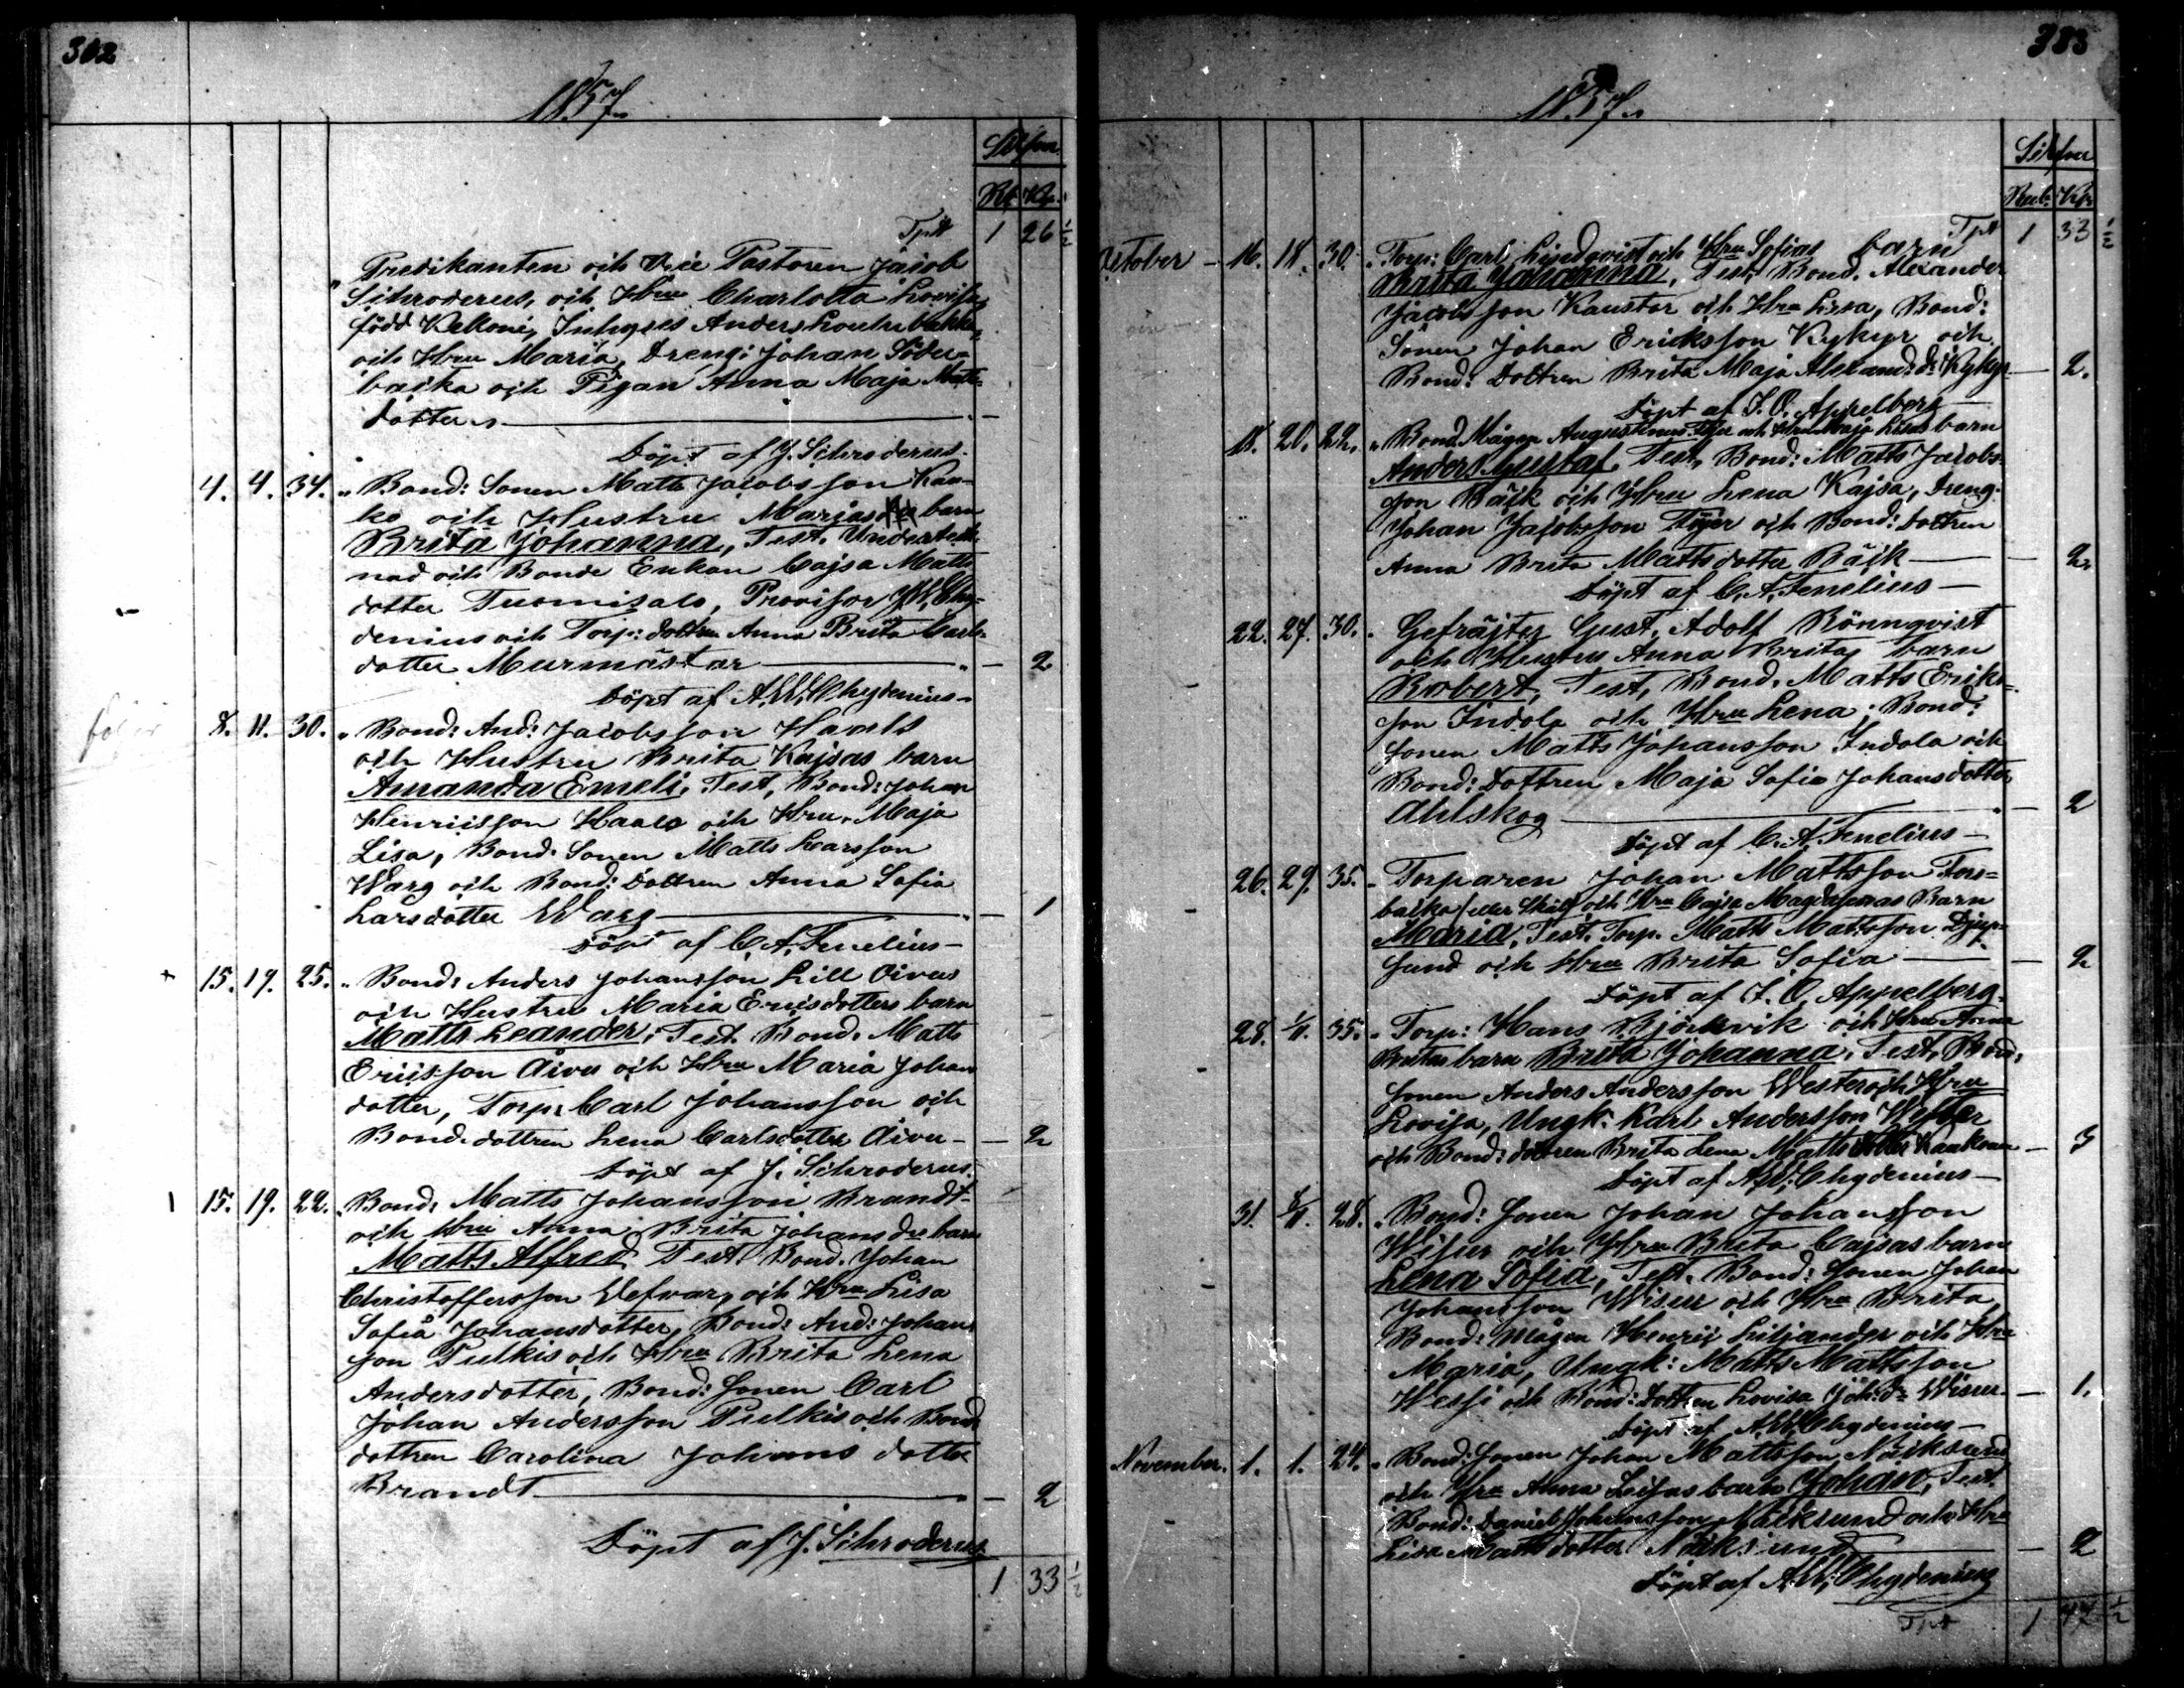 302
1857.
Silfver
Rb. Kp.
Tpt 1 26 1/2
Predikanten och Vice Pastoren Jacob
Schroderus, och Hru Charlotta Lovisa,
född Kellonii, Anders
och Hru Maria, Dreng: Johan Söder-
backa och Pigan Anna Maja Matts-
dotter
Döpt af J. Schroderus.
4. 4. 34. " Bond: Sonen Matts Jacobsson Kan-
ko och Hustru Marias barn
Brita Johanna, Test.
nad och Bonde Enkan Cajsa Matts
dotter Tuomisalo, Provisor Chy-
denius och Torp: dottren Anna Brita Carls-
dotter Murmästar — 2
Döpt af A.W. Chydenius
8. 11. 30. " Bond: And: Jacobsson Haals
och Hustru Brita Kajsas barn
Amanda Emeli, Test, Bond: Johan
Henricsson Haals och Hru. Maja
Lisa, Bond. Sonen Matts Larsson
Warg och Bond: Dottren Anna Sofia
Larsdotter Warg — 1
Döpt af C.A. Fenelius
+ 15. 19. 25. " Bond: Anders Johansson Lill Oivus
och Hustru Maria Ericsdotters barn
Matts Leander; Test. Bond. Matts
Ericsson Åivu och Hru Maria Johans
dotter, Torp: Carl Johansson och
Bond. dottren Lena Carlsdotter Åivu — 2
Döpt af J. Schroderus.
15. 19. 22. " Bond: Matts Johansson Brandt
och Hru Anna Brita Johans dr barn
Matts Alfred. Test. Bond. Johan
Christoffersson och Hru Lisa
Sofia Johansdotter, Bond: And: Johans
son Pulkis och Hru Brita Lena
Andersdotter, Bond: sonen Carl
Johan Andersson Pulkis och Bond
dottren Carolina Johans dotter
Brandt — 2
Döpt af J. Schroderus
1 33 1/2
383
1857.
Silfver
Rub. Kp.
Tpt 1 33 1/2
October 16. 18. 30. " Torp: Carl Lindqvist och Hru Sofias barn
Brita Johanna, Test. Bond. Alexander
Jacobsson Kaustar och Hru Lisa, Bond:
Sonen Johan Eriksson Kykyr och
Bond: Dottren Brita Maja Alexand: dr Kykyr — 2.
Döpt af J.O. Appelberg
18. 20. 22. " Bond. Mågen Augustinus och Hru Maja Lisas barn
Anders Gustaf, Test, Bond: Matts Jacobs-
son Bäck och Hru Lena Kajsa, Dreng.
Johan Jacobsson och Bond: Dottren
Anna Brita Mattsdotter Bäck — 2
Döpt af C.A. Fenelius
22. 27. 30. " Gefrajter Gust. Adolf Rönnqvist
och Hustru Anna Britas barn
Robert, Test, Bond. Matts Eriks-
son Indola och Hru Lena, Bond:
sonen Matts Johansson Indola och
Bond: Dottren Maja Sofia Johansdotter
Ahlskog — 2
Döpt af C.A. Fenelius
26. 29. 35. " Torparen Johan Mattsson Fors-
backa och Hru Cajsa Magdalenas Barn
Maria, Test. Torp. Matts Mattsson Djup-
sund och Hru Brita Sofia — 2
Döpt af J.O. Appelberg
28. 1/11. 35. " Torp: Hans Björkvik och Hru Anna
Britas barn Brita Johanna, Test, Bond:
sonen Anders Andersson Wester och Hru
Lovisa, Ungk: Karl Andersson Wester
och Bond: dottren Brita Lena Matts dotter — 3
Döpt af A.W. Chydenius
31. 8/11. 28. " Bond: sonen Johan Johansson
Wisur och Hru Brita Cajsas barn
Lena Sofia, Test. Bond: sonen Johan
Johansson Wisur och Hru Brita,
Bond: Mågen Henric Liljander och Hru
Maria, Ungk: Matts Mattsson
och Bond: Dottren Lovisa Joh: dr Wisur — 1.
Döpt af A.W. Chydenius
November. 1. 1. 24. " Bond: Sonen Johan Mattsson Näcksund
och Hru Anna Lisas barn Johan, Test.
Bond: Daniel Johansson Näcksund och Hru
Lisa Matts dotter Näcksund — 2
Döpt af A.W. Chydenius
Tpt 1 47 1/2